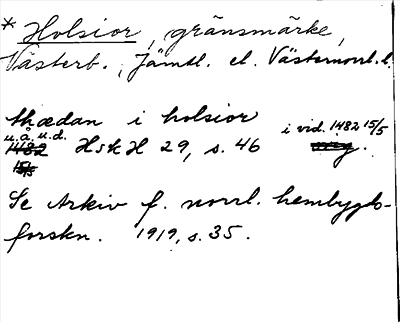 * Holsior, gränsmärke,
Västerb., Jämtl. el. Västernorrl. l.
thædan i holsior
u.å. u.d. HskH 29, s. 46 i vid. 1482 15/5
1482 orig.
15/5
Se Arkiv f. norrl. hembygds-
forskn. 1919, s. 35.